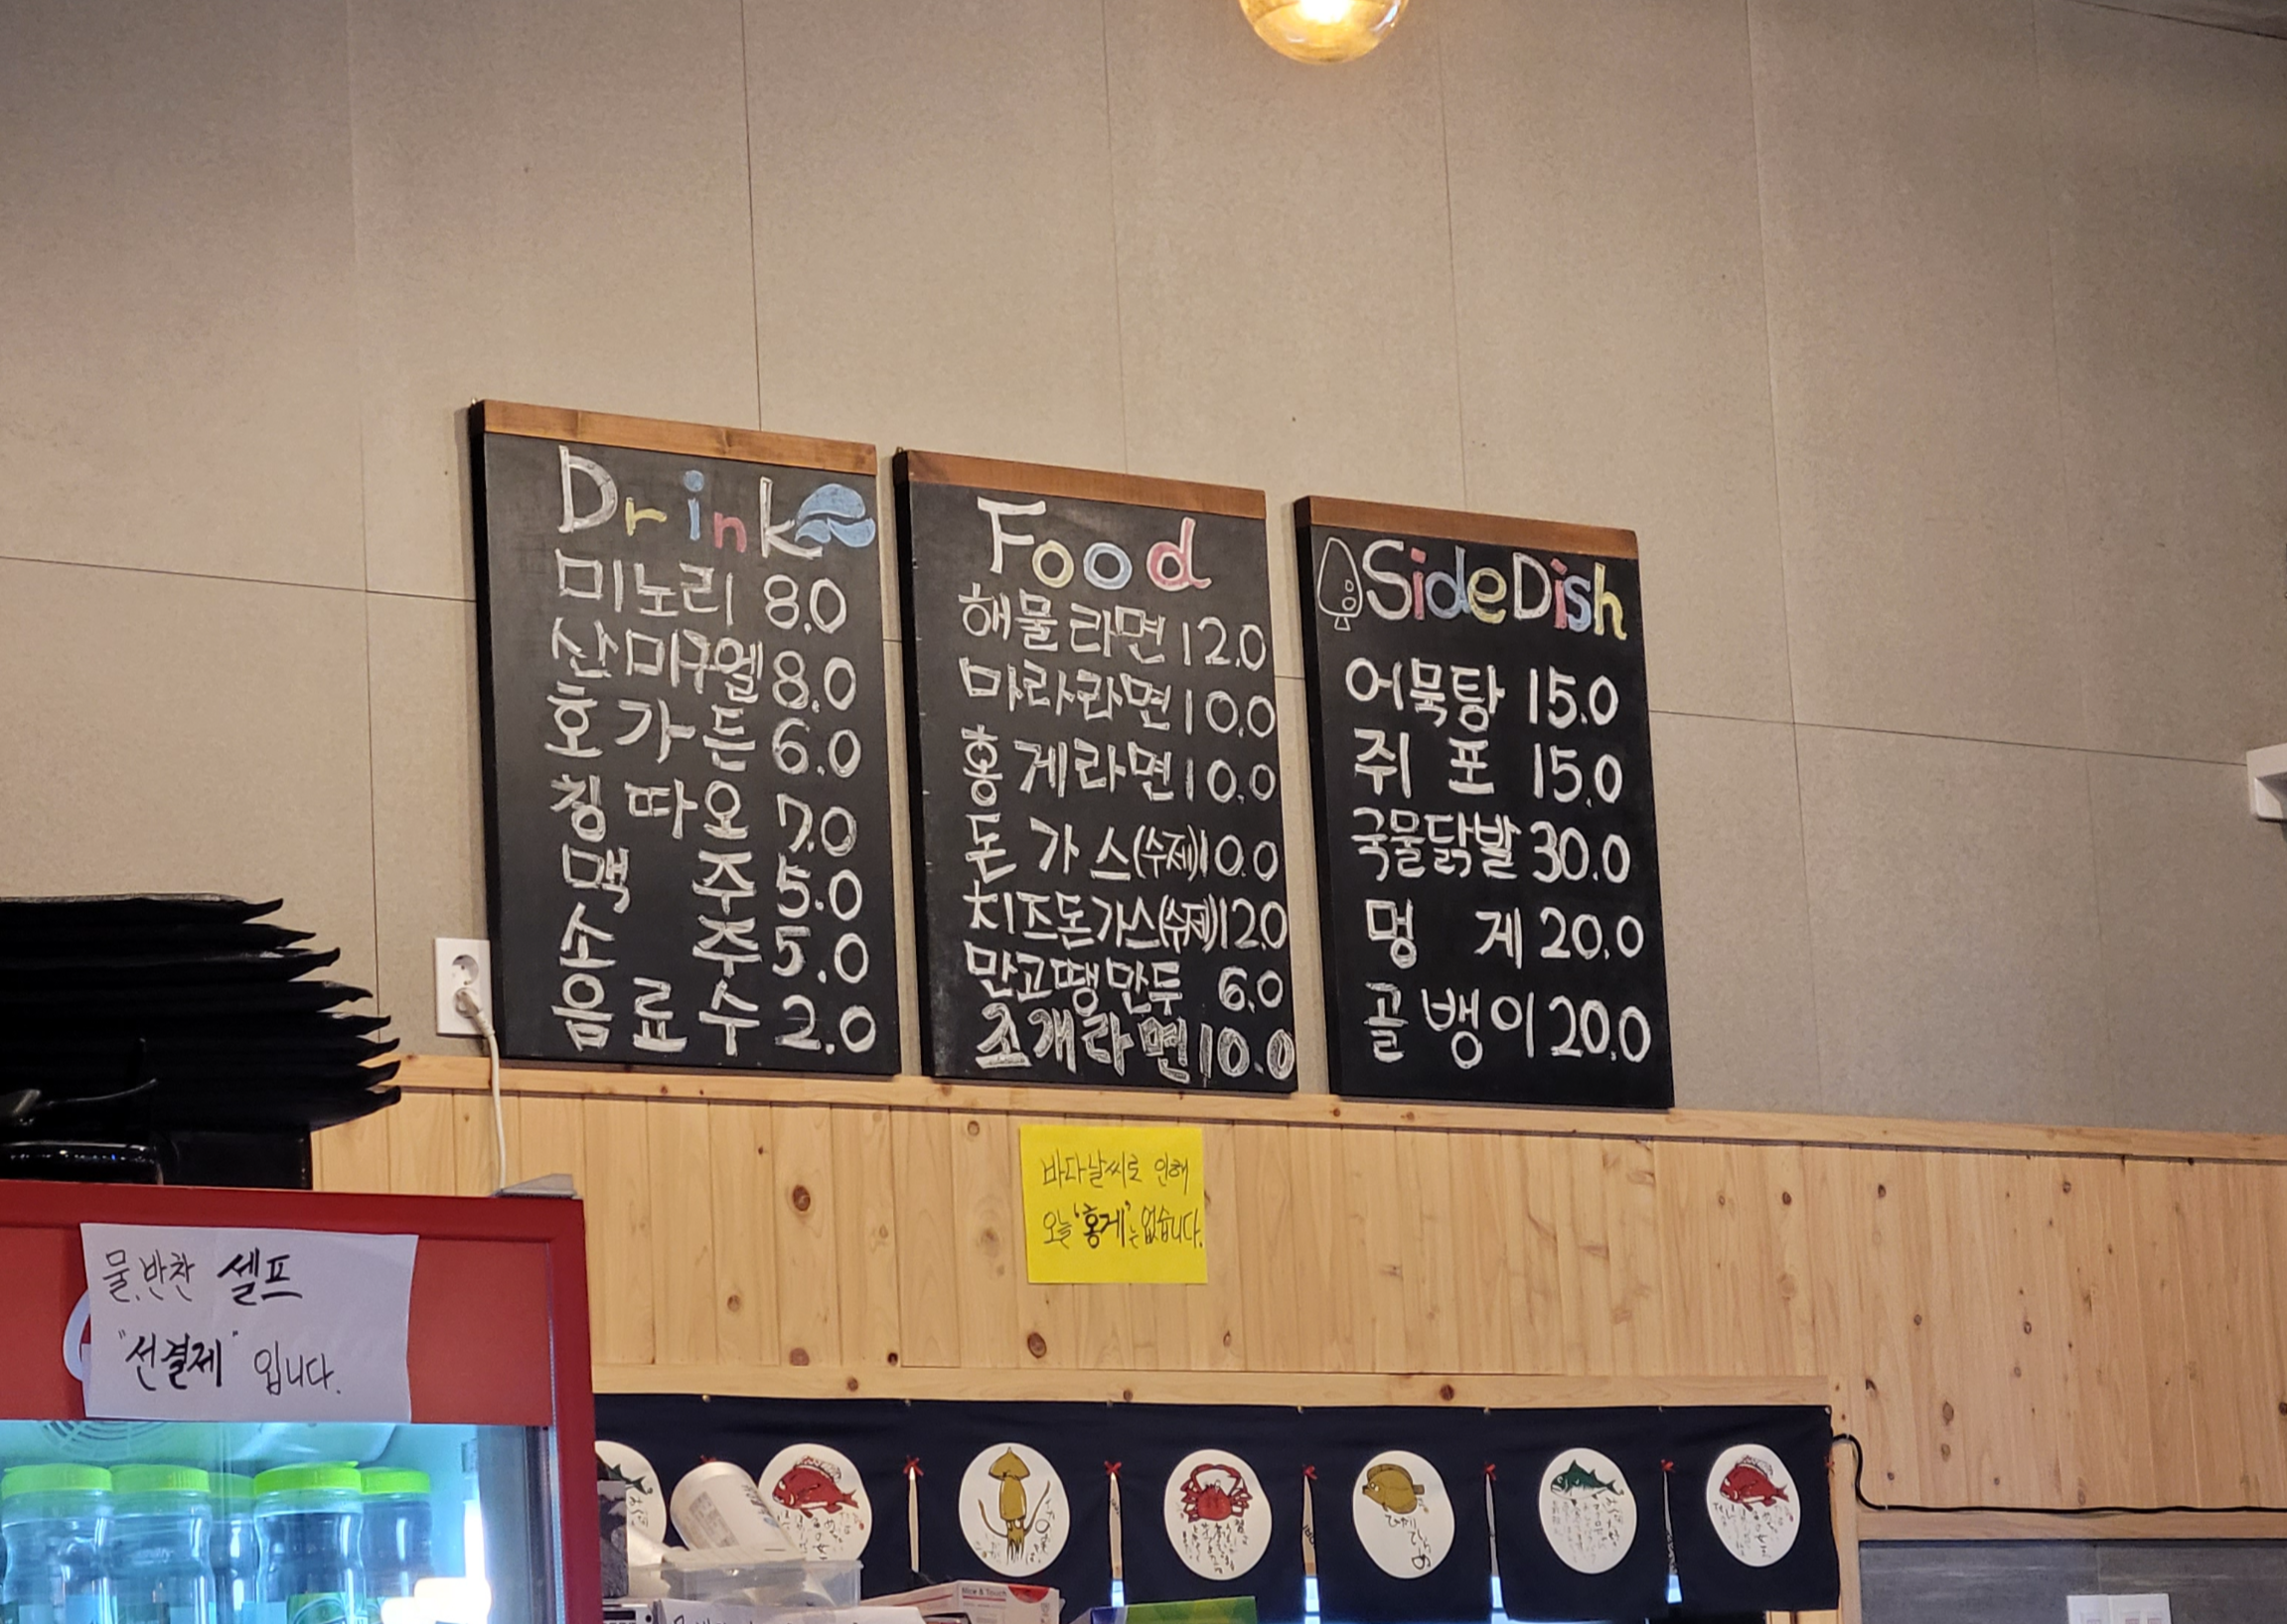 Drink
미노리 8.0
산미구엘 8.0
호가든 6.0
칭따오 7.0
맥주 5.0
소주 5.0
음료수 2.0
Food
해물라면 12.0
마라라면 10.0
홍게라면 10.0
돈가스(수제) 10.0
치즈돈가스(수제) 12.0
만고땡만두 6.0
조개라면 10.0
Side Dish
어묵탕 15.0
쥐포 15.0
국물닭발 30.0
멍게 20.0
골뱅이 20.0
바다날씨로 인해
오늘 '홍게'는 없습니다.
물, 반찬 셀프
"선결제" 입니다.